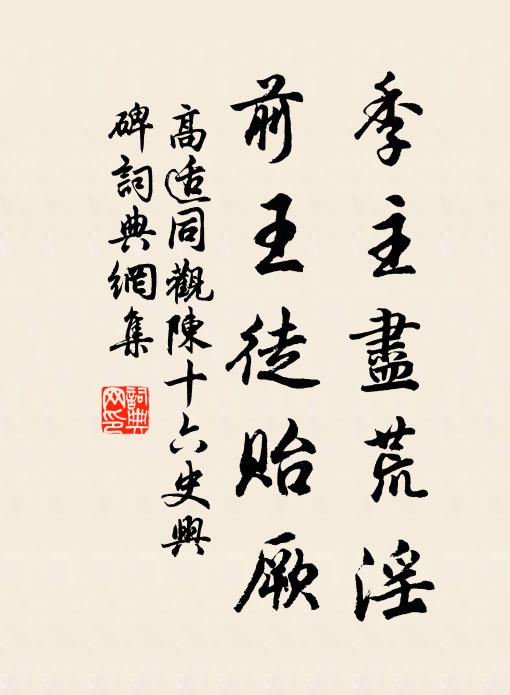 季主盡荒淫
前王徒貽厥
高适同觀陳十六史興
碑詞典網集
詞典网印